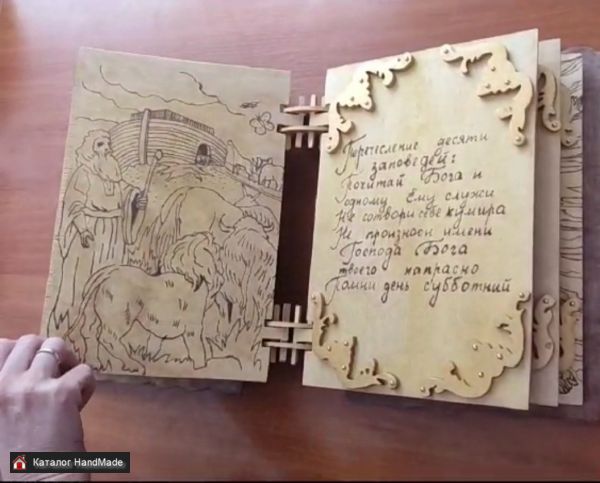 Перечесление десяти
заповедей:
Почитай Бога и
одному Ему служи
Не сотвори себе кумира
Не произноси имени
Господа Бога
твоего напрасно
Помни день субботний
Каталог HandMade